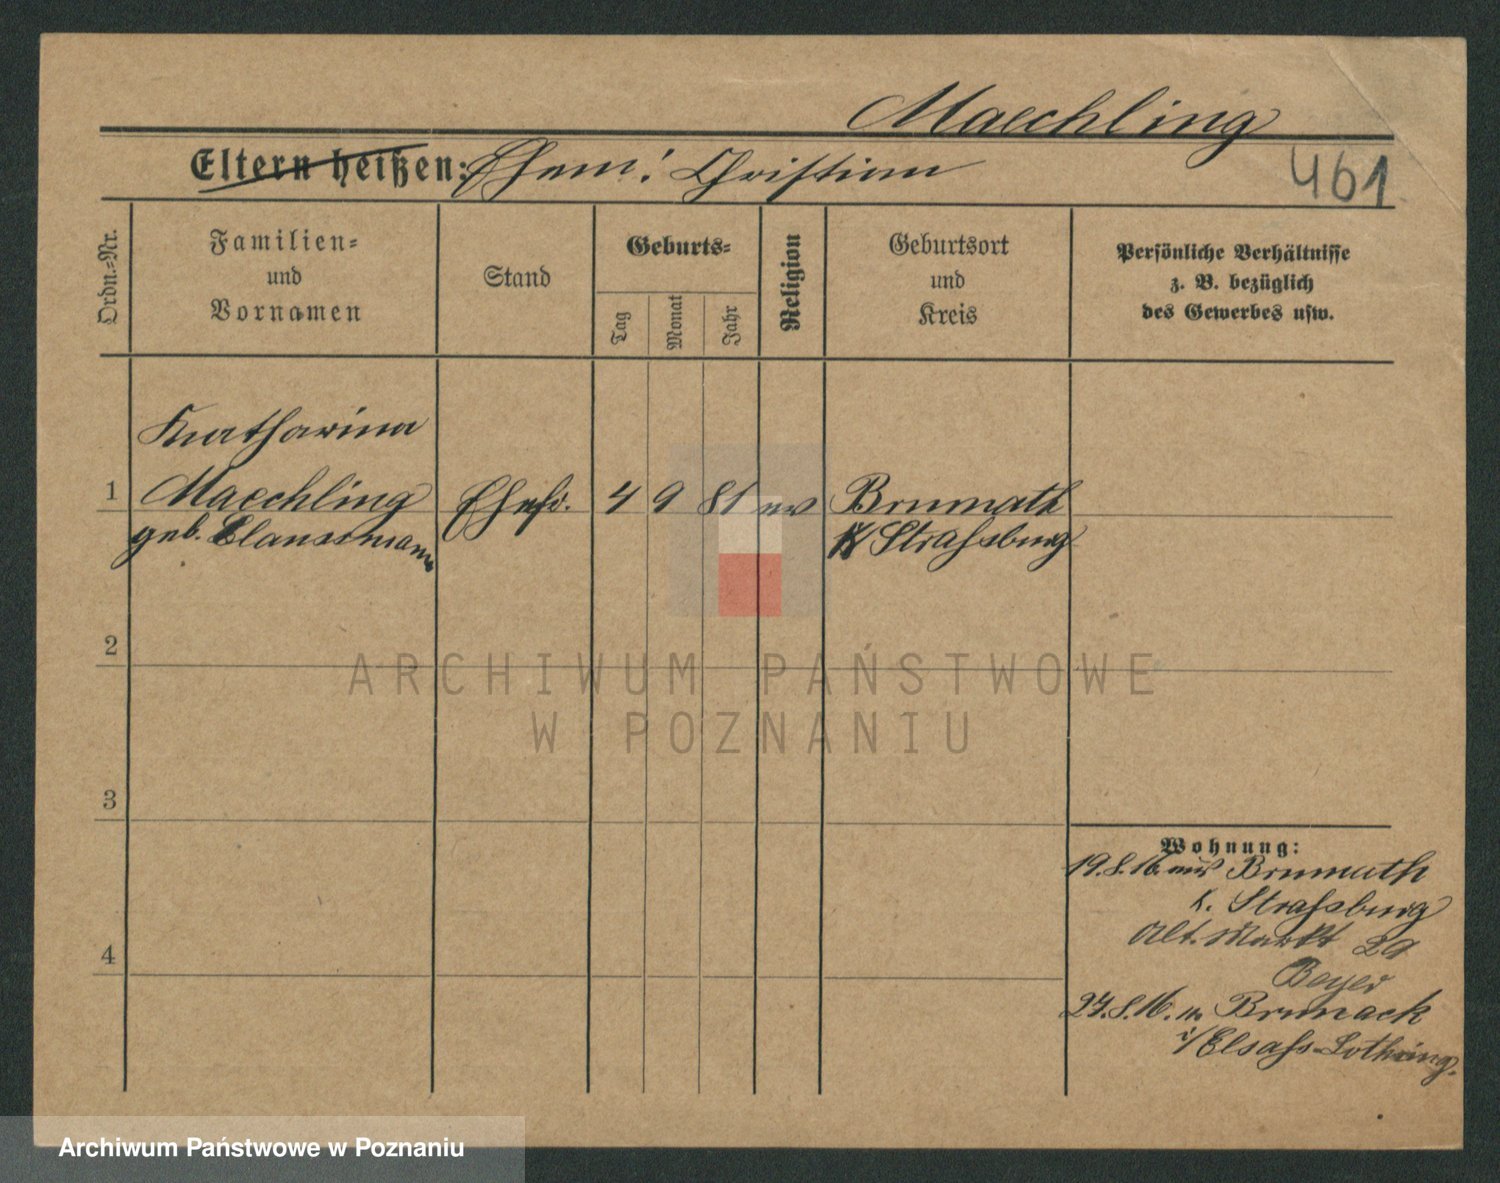 Maechling
Eltern heißen: Ehem: Christian
461
Ordn.-Nr.
Familien-
und
Vornamen
Stand
Geburts-
Tag
Monat
Jahr
Religion
Geburtsort
und
Kreis
Persönliche Verhältnisse
z. B. bezüglich
des Gewerbes usw.
Katharina
1 Maechling Ehefr. 4 9 81 ev Brumath
geb. Claussmann K/ Strassburg
2
3
4
ARCHIWUM PAŃSTWOWE
W POZNANIU
Wohnung:
19.8.16. aus Brumath
k. Strassburg
Alt. Markt 29
Beyer
27.8.16. n. Brumack
i/Elsass-Lothring.
Archiwum Państwowe w Poznaniu